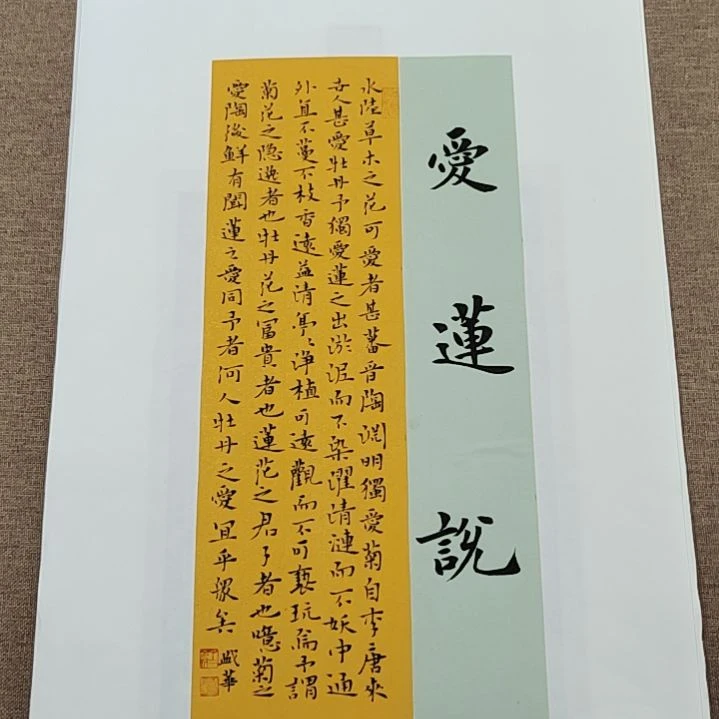 愛蓮説
水陸草木之花可愛者甚蕃晉陶淵明獨愛菊自李唐來
世人甚愛牡丹予獨愛蓮之出淤泥而不染濯清漣而不妖中通
外直不蔓不枝香遠益清亭〻淨植可遠觀而不可褻玩焉予謂
菊花之隱逸者也牡丹花之富貴者也蓮花之君子者也噫菊之
愛陶後鮮有聞蓮之愛同予者何人牡丹之愛宜乎眾矣
盛華